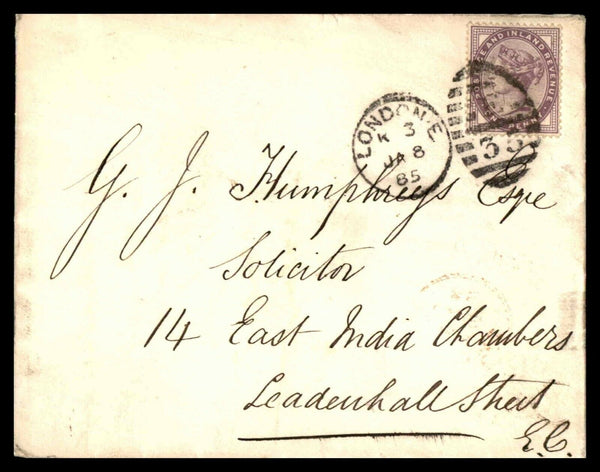 POSTAGE AND INLAND REVENUE
LONDON.E
K 3
JA 8
85
35
G. J. Humphreys Esqe
Solicitor
14 East India Chambers
Leadenhall Street
E.C.